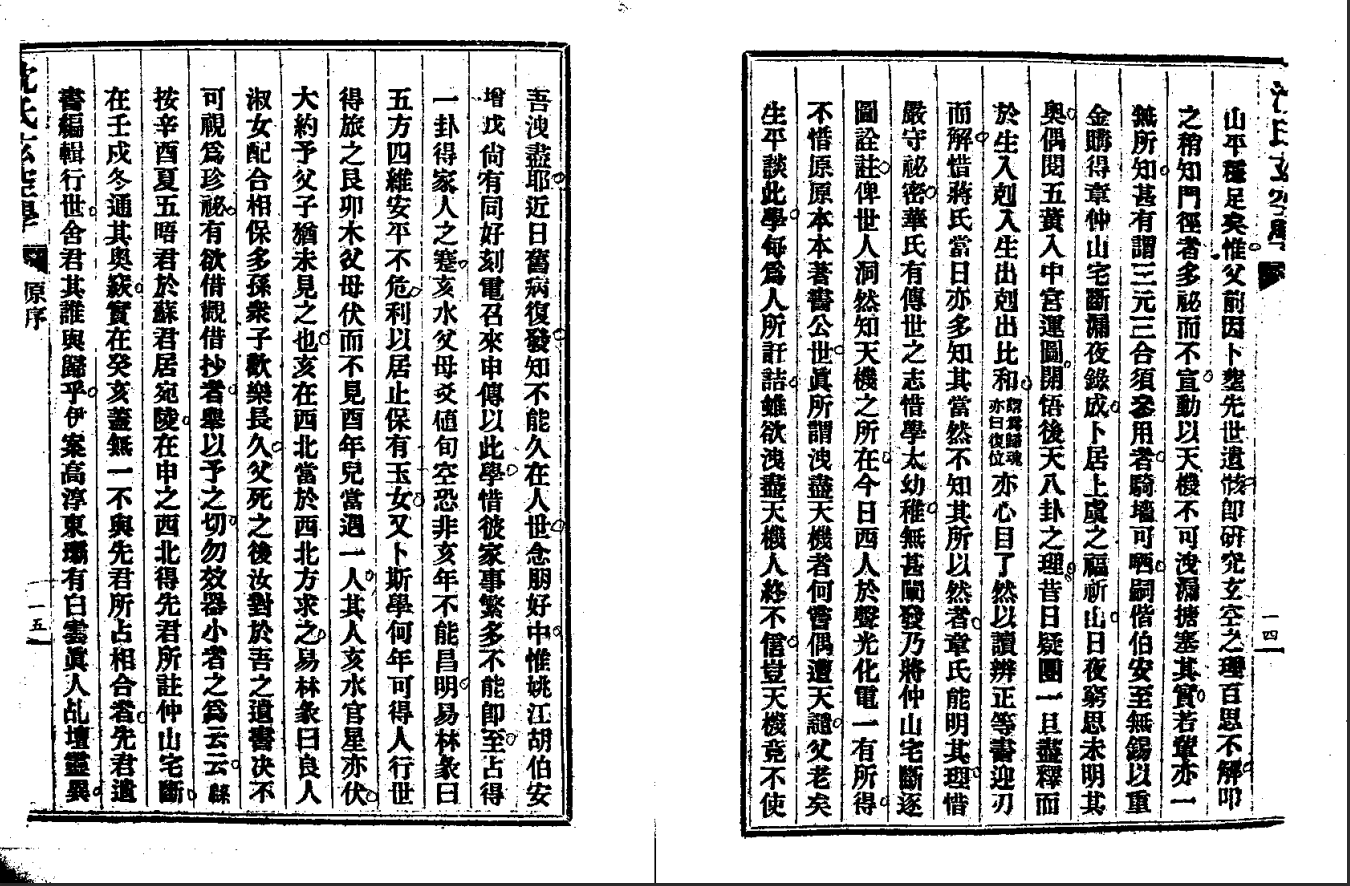 沈氏玄空學
一四
山平穩足矣惟父前因卜塟先世遺骸卽研究玄空之理百思不解叩
之稍知門徑者多祕而不宣動以天機不可洩漏搪塞其實若輩亦一
無所知甚有謂三元三合須叅用者騎墻可哂嗣偕伯安至無錫以重
金購得章仲山宅斷漏夜錄成卜居上虞之福祈山日夜窮思未明其
奧偶閱五黃入中宮運圖開悟後天八卦之理昔日疑團一旦盡釋而
於生入剋入生出剋出比和卽爲歸魂亦曰復位亦心目了然以讀辨正等書迎刃
而解惜蔣氏當日亦多知其當然不知其所以然者章氏能明其理惜
嚴守祕密華氏有傳世之志惜學太幼稚無甚闡發乃將仲山宅斷逐
圖詮註俾世人洞然知天機之所在今日西人於聲光化電一有所得
不惜原原本本著書公世眞所謂洩盡天機者何嘗偶遭天譴父老矣
生平談此學每爲人所訐詰雖欲洩盡天機人終不信豈天機竟不使
吾洩盡耶近日舊病復發知不能久在人世念朋好中惟姚江胡伯安
增戊尙有同好刻電召來申傳以此學惜彼家事繁多不能卽至占得
一卦得家人之蹇亥水父母爻値旬空恐非亥年不能昌明易林彖曰
五方四維安平不危利以居止保有玉女又卜斯學何年可得人行世
得旅之艮卯木父母伏而不見酉年兒當遇一人其人亥水官星亦伏
大約予父子猶未見之也亥在西北當於西北方求之易林彖曰良人
淑女配合相保多孫衆子歡樂長久父死之後汝對於吾之遺書决不
可視爲珍祕有欲借觀借抄者舉以予之切勿效器小者之爲云云緜
按辛酉夏五晤君於蘇君居宛陵在申之西北得先君所註仲山宅斷
在壬戍冬通其奧竅實在癸亥蓋無一不與先君所占相合者先君遺
書編輯行世舍君其誰與歸乎伊案高淳東壩有白雲眞人乩壇靈異
沈氏玄空學
原序
一五